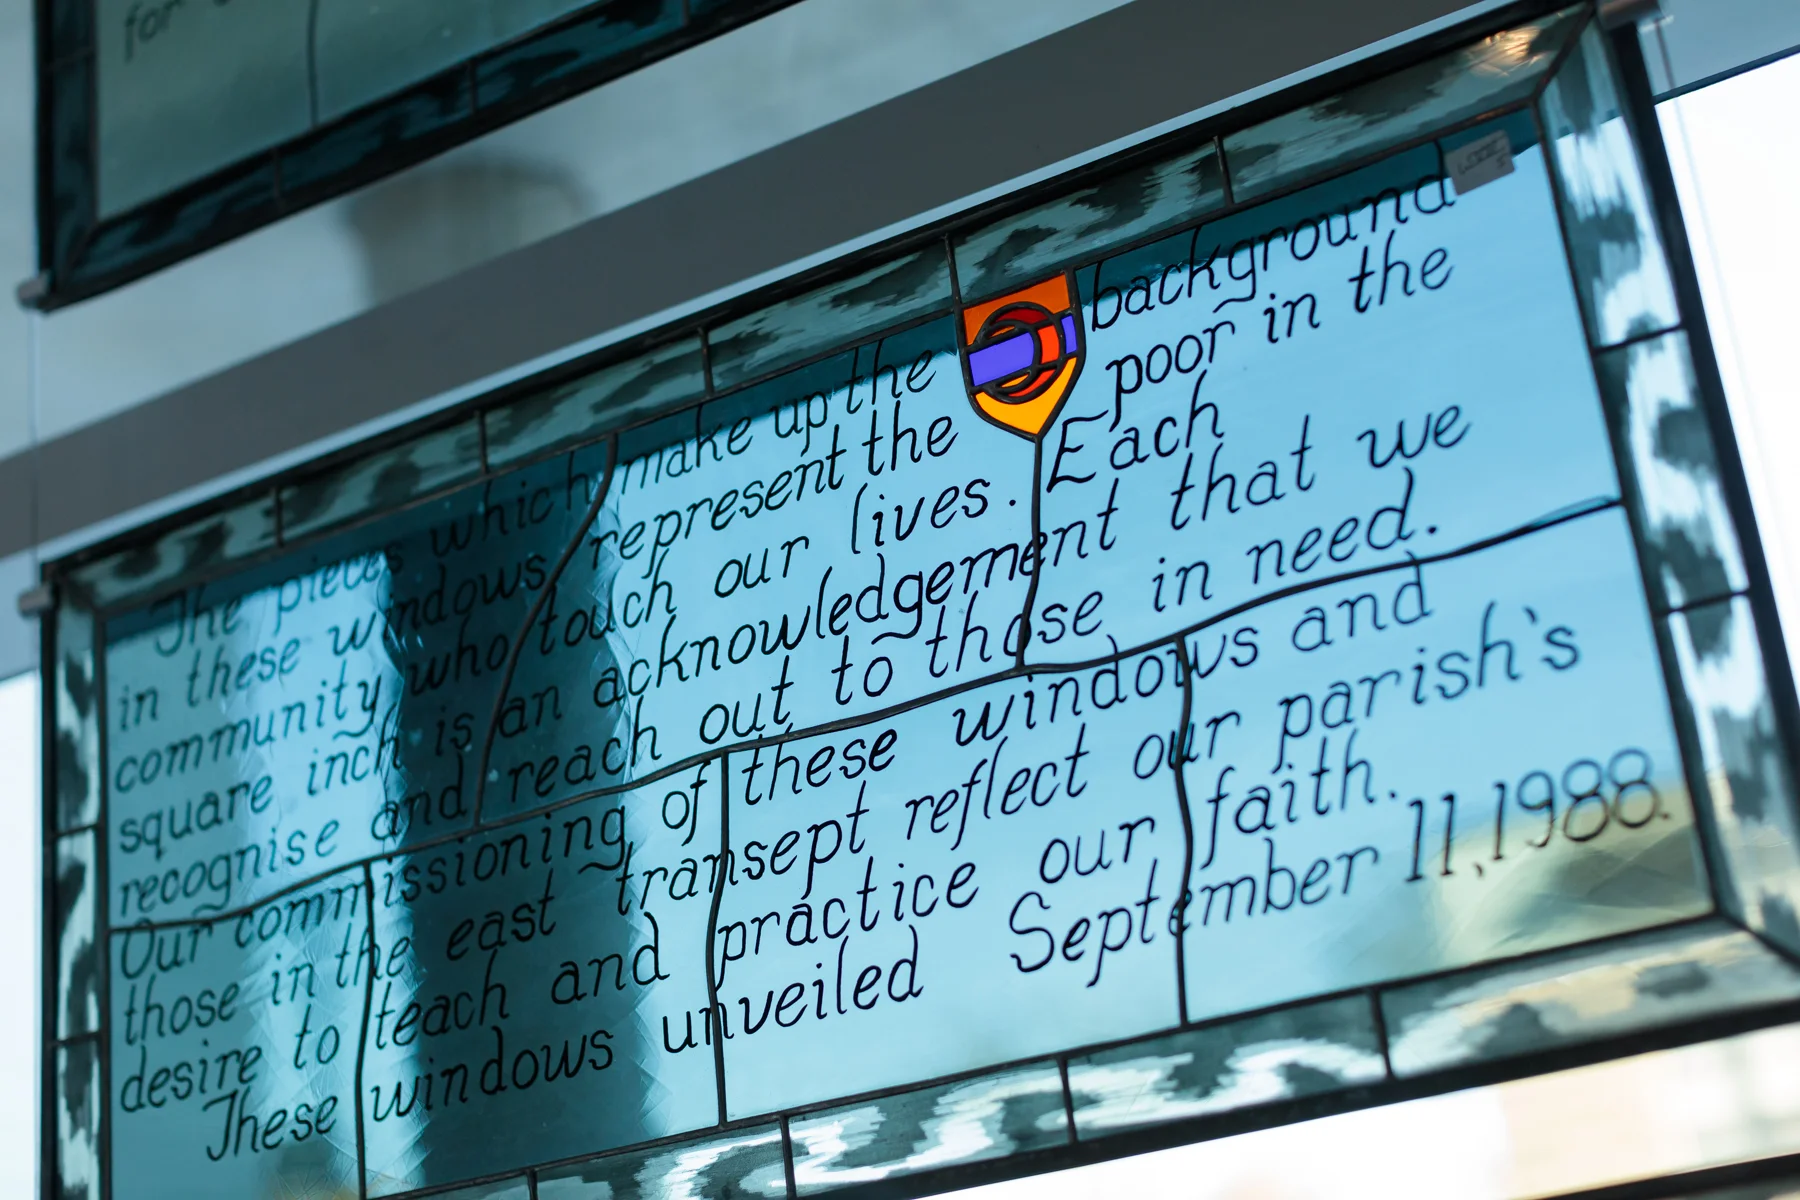 for
The pieces which make up the background
in these windows represent the poor in the
community who touch our lives. Each
square inch is an acknowledgement that we
recognise and reach out to those in need.
Our commissioning of these windows and
those in the east transept reflect our parish's
desire to teach and practice our faith.
These windows unveiled September 11, 1988.